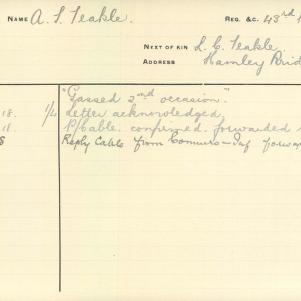 NAME A. S. Teakle. REG. &C. 43rd
NEXT OF KIN L. C. Teakle
ADDRESS Hamley Brid
"Gassed 2nd occasion."
18. 1/4 Letter acknowledged.
18. P/Cable. confirmed. forwarded
Reply Cable from Commrs - Inf forwar